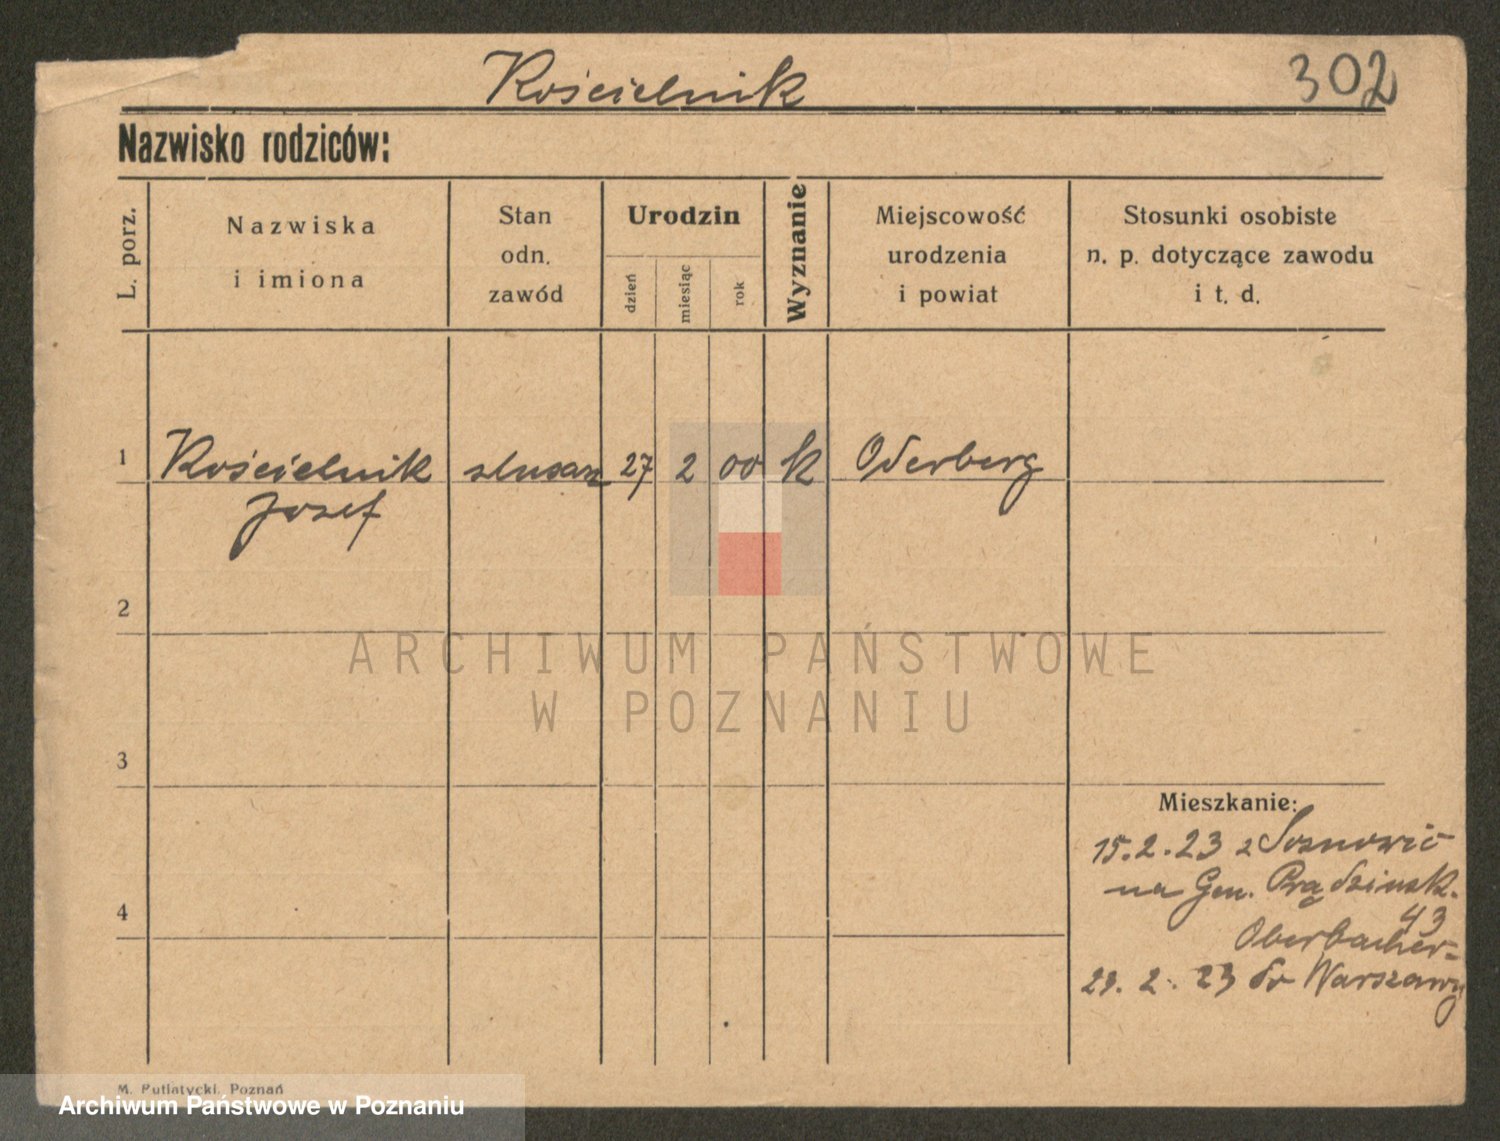 Kościelnik
302
Nazwisko rodziców:
L. porz.
Nazwiska
i imiona
Stan
odn.
zawód
Urodzin
dzień
miesiąc
rok
Wyznanie
Miejscowość
urodzenia
i powiat
Stosunki osobiste
n. p. dotyczące zawodu
i t. d.
1
Kościelnik
Josef
ślusarz
27
2
00
k
Oderberg
2
3
4
Mieszkanie:
15.2.23 z Sosnowic
na Gen. Prądzinsk.
43
Oberbacher-
23. 2. 23 do Warszawy
M. Putiatycki, Poznań
ARCHIWUM PAŃSTWOWE
W POZNANIU
Archiwum Państwowe w Poznaniu